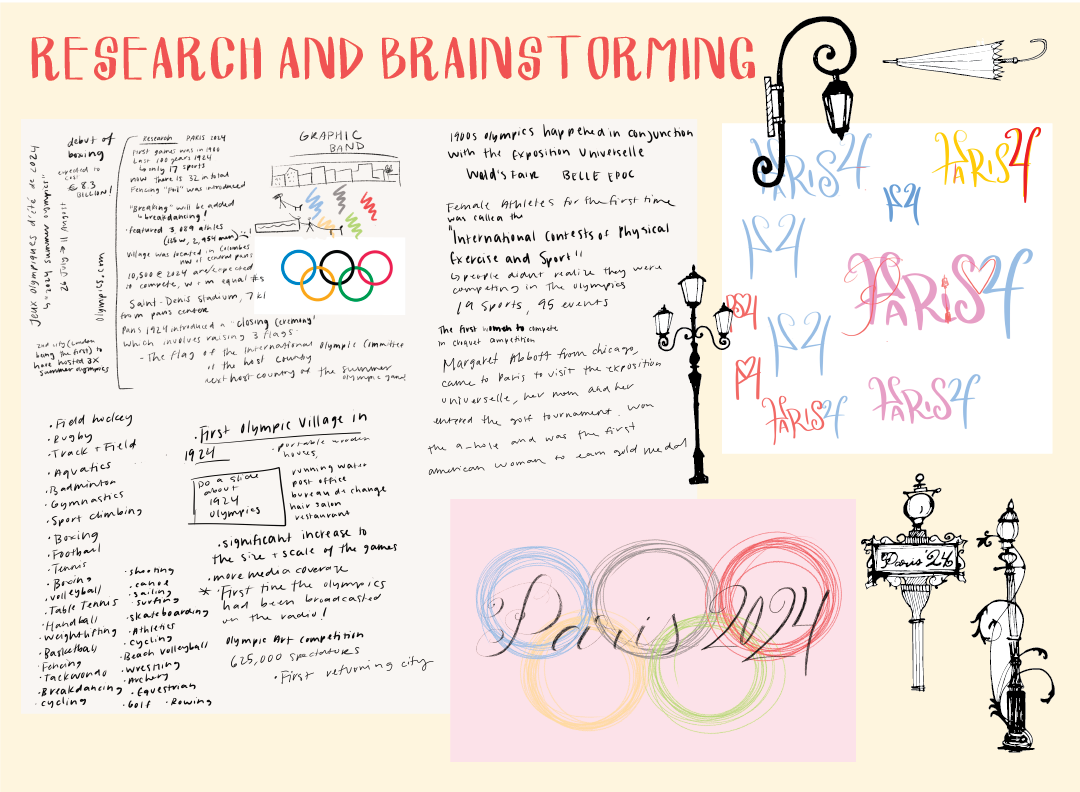 RESEARCH AND BRAINSTORMING
Jeux olympiques d'été de 2024
"2024 summer olympics"
26 July → 11 August!
olympics.com
debut of
boxing
expected to
cost
€ 8.3
BILLION!
2nd city (London
being the first) to
have hosted 3x
summer olympics
Research PARIS 2024
First games was in 1900
Last 100 years 1924
↳ only 17 sports
now there is 32 in total
Fencing "Foil" was introduced
"Breaking" will be added
↳ breakdancing!
• featured 3,089 athletes
2,954 men
Village was located in Colombes
NW of central paris
10,500 @ 2024 are expected
to compete, w + m equal #s
Saint-Denis Stadium, 7 km
from paris center
Paris 1924 introduced a "closing ceremony"
which involves raising 3 flags
- The flag of the International Olympic Committee
" the host country
next host country of the summer
olympic games
GRAPHIC
BAND
1900s olympics happened in conjunction
with the Exposition Universelle
Wold's Faire BELLE EPOC
Female Athletes for the first time
was called the
"International Contests of Physical
Exercise and Sport"
↳ people didnt realize they were
competing in the olympics
19 Sports, 95 events
The first women to compete
in croquet competition
Margaret Abbott from chicago,
came to Paris to visit the exposition
universelle, her mom and her
entered the golf tournament. Won
the 9-hole and was the first
american woman to earn gold medal
• Field hockey
• Rugby
• Track + Field
• Aquatics
• Badminton
• Gymnastics
• Sport climbing
• Boxing
• Football
• Tennis
• Boxing
• volleyball
• Table Tennis
• Handball
• Weightlifting
• Basketball
• Fencing
• Taekwondo
• Breakdancing
• cycling
• shooting
• canoe
• sailing
• surfing
• skateboarding
• Athletics
• cycling
• Beach volleyball
• Wrestling
• Archery
• Equestrian
• Golf • Rowing
• First Olympic Village in
1924
• portable wooden
houses,
running water
post office
bureau de change
hair salon
restaurant
Do a slide
about
1924
olympics
• significant increase to
the size + scale of the games
• more media coverage
* • First time the olympics
had been broadcasted
on the radio!
Olympic Art competition
625,000 spectators
• First returning city
PARIS 24
PARIS 24
PS24
PARIS 24
PARIS 24
PARIS 24
Paris 2024
Paris '24